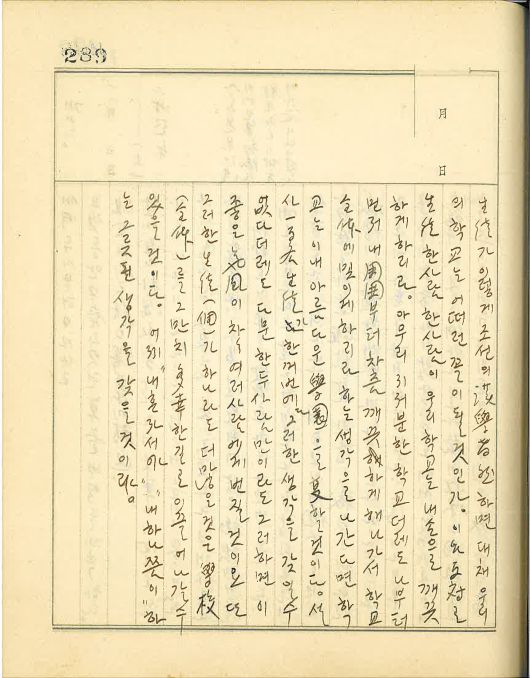 289
月
日
生徒가 이렇게 조선의 하면 대체 우리
의 학교는 어떠런 꼴이 될 것인가. 이와 反對로
生徒 한사람 한사람이 우리 학교를 내손으로 깨끗
하게 하리라. 아무리 지저분한 학교더레도 나부터
먼저 내 周囲부터 차츰 깨끗하게 해나가서 학교
全体에 및이게 하리라 하는 생각으로 나간다면 학
교는 이내 아름다운 學園으로 変할 것이다. 설
사 一등 生徒가 한꺼번에 그러한 생각을 갖일수
없다더레도 다문 한두사람만이라도 그러하면 이
좋은 이 차차 여러사람에게 번질 것이요 또
그러한 生徒(個)가 하나라도 더 많을 것은 學校
(全体)를 그만치 幸한 길로 이끌어 나갈 수
있을 것이다. 어찌 "내 혼자서야" "내 하나쯤이" 하
는 그릇된 생각을 갖을 것이랴.